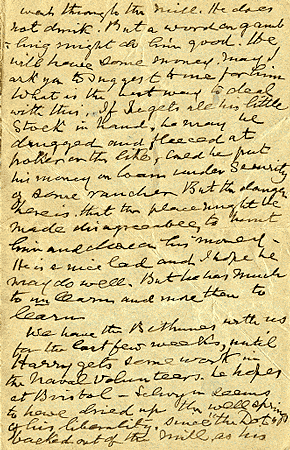 went through the mill. He does
not drink. But a word on gamb
-ling might do him good. He
will have some money. May I
ask you to suggest to me for him
what is the best way to deal
with this. If he gets all his little
stock in hand, he may be
drugged and fleeced at
poker or the like, could he put
his money on loan under security
of some rancher. But the danger
there is that the place might be
made disagreeable to hunt
him and his money -
He is a nice lad and I hope he
may do well. But he has much
to unlearn and more then to
learn
We have the Bethunes with us
for the last few weeks, until
Harry gets some work in
the Naval Volunteers. he hopes
at Bristol - Selwyn seems
to have dried up the well spring
of his liberality, since the
backed out of the Mill, as his